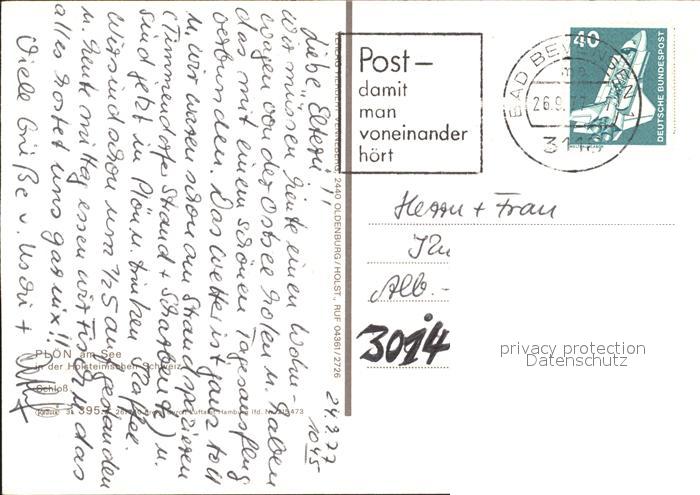 24.9.77
10 45
Liebe Eltern!
Wir müssen heute einen Wohn-
wagen von der Ostsee holen u. haben
das mit einem schönen Tagesausflug
verbunden. Das Wetter ist ganz toll
u. wir waren schon am Strand spazieren
(Timmendorfer Strand + Scharbeutz) u.
sind jetzt in Plön u. trinken Kaffee.
Wir sind schon um 1/2 5 aufgestanden
u. heute mittag essen wir u. das
alles kostet uns gar nix!!
Viele Grüße v. Uschi +
PLÖN am See
in der Holsteinischen Schweiz
Schloß
395
2440 OLDENBURG/HOLST., RUF 04361/2726
Post–
damit
man
voneinander
hört
BAD BEVENSEN 1
26.9.77
311
40
DEUTSCHE BUNDESPOST
Herrn + Frau
Alb.-
3014
privacy protection
Datenschutz